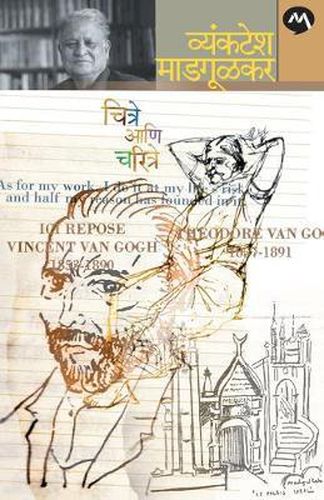 व्यंकटेश
माडगूळकर
चित्रे
आणि
चरित्रे
As for my work, I do it at my life's risk
and half my reason has founded in it.
ICI REPOSE
VINCENT VAN GOGH
1853-1890
THEODORE VAN GO
1857-1891